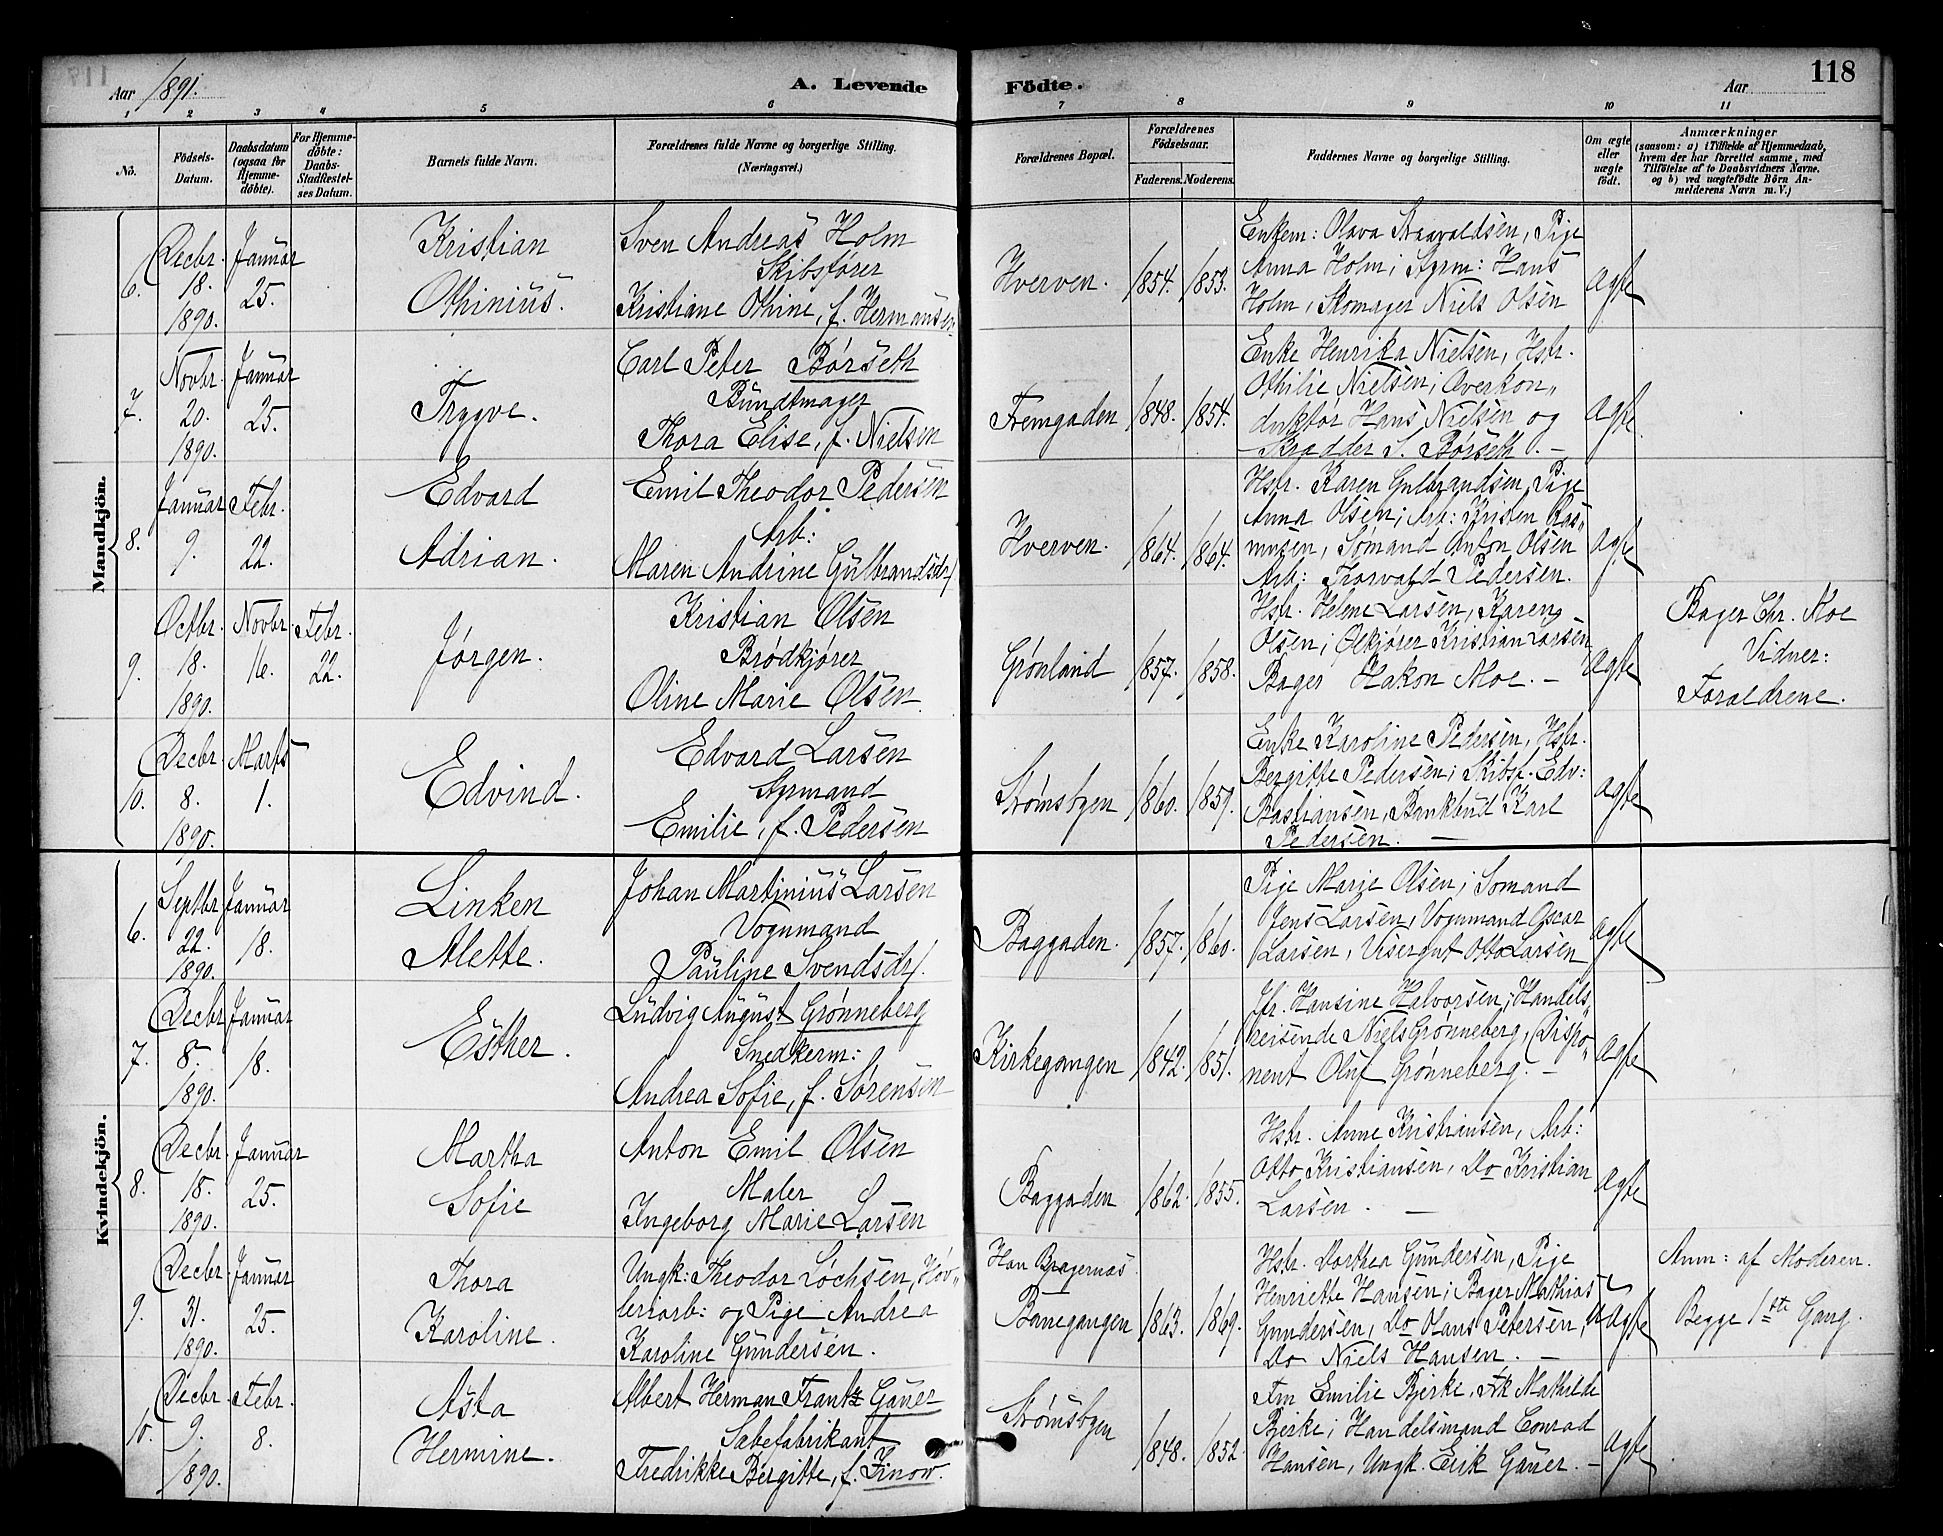 118
Aar 1891.
A. Levende
Födte.
Aar
1 2 3 4 5 6 7 8 9 10 11
No.
Födsels-
Datum.
Daabsdatum
(ogsaa for
Hjemme-
döbte).
For Hjemme-
döbte:
Daabs-
Stadfæstel-
ses Datum.
Barnets fulde Navn.
Forældrenes fulde Navne og borgerlige Stilling.
(Næringsvei.)
Forældrenes Bopæl.
Forældrenes
Födselsaar.
Faderens. Moderens.
Faddernes Navne og borgerlige Stilling.
Om ægte
eller
uægte
födt.
Anmærkninger
(saasom: a) i Tilfælde af Hjemmedaab,
hvem der har forrettet samme, med
Tilföielse af to Daabsvidners Navne,
og b) ved uægtefödte Börn An-
melderens Navn m. V.)
Mandkjön.
6.
Decbr.
18.
1890.
Januar
25.
Kristian
Othinius.
Sven Andreas Holm
Skibsfører
Kristiane Othine, f. Hermansen
Hverven.
1854. 1853.
Enkem: Olava Straavaldsen, Pige
Anna Holm; Styrm: Hans
Holm, Skomager Niels Olsen
ægte
7.
Novbr.
20.
1890.
Januar
25.
Trygve.
Carl Peter Børseth
Bundtmager
Thora Elise, f. Nielsen
Tremgaden
1848. 1854.
Enke Henrika Nielsen, Hstr.
Othilie Nielsen; Overkon„
duktør Hans Nielsen og
Skrædder S. Børseth. –
ægte
8.
Januar
9.
Febr.
22.
Edvard
Adrian.
Emil Theodor Pedersen
Arb:
Maren Andrine Gulbrandsdr.
Hverven.
1864. 1864.
Hstr. Karen Gulbrandsen, Pige
Anna Olsen; Arb: Kristen Ras„
musen, Sømand Anton Olsen
Arb: Thorvald Pedersen.
ægte
9.
Octbr.
18.
1890.
Novbr.
16.
Febr.
22.
Jørgen.
Kristian Olsen
Brødkjører
Oline Marie Olsen
Grønland
1857. 1858.
Hstr. Helene Larsen, Karen
Olsen; Ølkjører Kristian Larsen
Bager Hakon Moe. –
ægte
Bager Chr. Moe
Vidner:
Forældrene.
10.
Decbr.
8.
1890.
Marts
1.
Edvind.
Edvard Larsen
Styrmand
Emilie, f. Pedersen
Strømsbyen
1860. 1859.
Enke Karoline Pedersen, Hstr.
Bergitte Pedersen; Skibsf. Edv:
Bastiansen, Bankbud Karl
Pedersen. –
ægte
Kvindekjön.
6.
Septbr.
22.
1890.
Januar
18.
Linken
Alette.
Johan Martinius Larsen
Vognmand
Pauline Svendsdr.
Baggaden.
1857. 1860.
Pige Marie Olsen; Sømand
Jens Larsen, Vognmand Oscar
Larsen, Visergut Otto Larsen
ægte
7.
Decbr
8.
1890.
Januar
18.
Esther.
Ludvig August Grønneberg
Snedkerm:
Andrea Sofie, f. Sørensen
Kirkegangen
1842. 1851.
Jfr. Hansine Halvorsen; Handels„
reisende Niels Grønneberg, Dispo„
nent Oluf Grønneberg. –
ægte
8.
Decbr.
18.
1890.
Januar
25.
Martha
Sofie
Anton Emil Olsen
Maler
Ingeborg Marie Larsen
Baggaden
1862. 1855.
Hstr. Anne Kristiansen, Arb:
Otto Kristiansen, Do Kristian
Larsen. –
ægte
9.
Decbr.
31.
1890.
Januar
25.
Thora
Karoline.
Ungk: Theodor Lochsen, Høv„
leriarb: og Pige Andrea
Karoline Gundersen.
Han Bragernæs.
Banegangen
1863. 1869.
Hstr. Dorthea Gundersen, Pige
Henriette Hansen; Bager Mathias
Gundersen, Do Hans Petersen,
Do Niels Hansen. –
uægte
Anm: af Moderen.
Begge 1ste Gang.
10.
Decbr.
9.
1890.
Febr.
8.
Asta
Hermine.
Albert Herman Frantz Gauer
Sæbefabrikant
Fredrikke Bergitte, f. Finow.
Strømsbyen
1848. 1852
Fru Emilie Bjerke, Frk Mathilde
Bjerke; Handelsmand Conrad
Hansen, Ungk. Erik Gauer. –
ægte